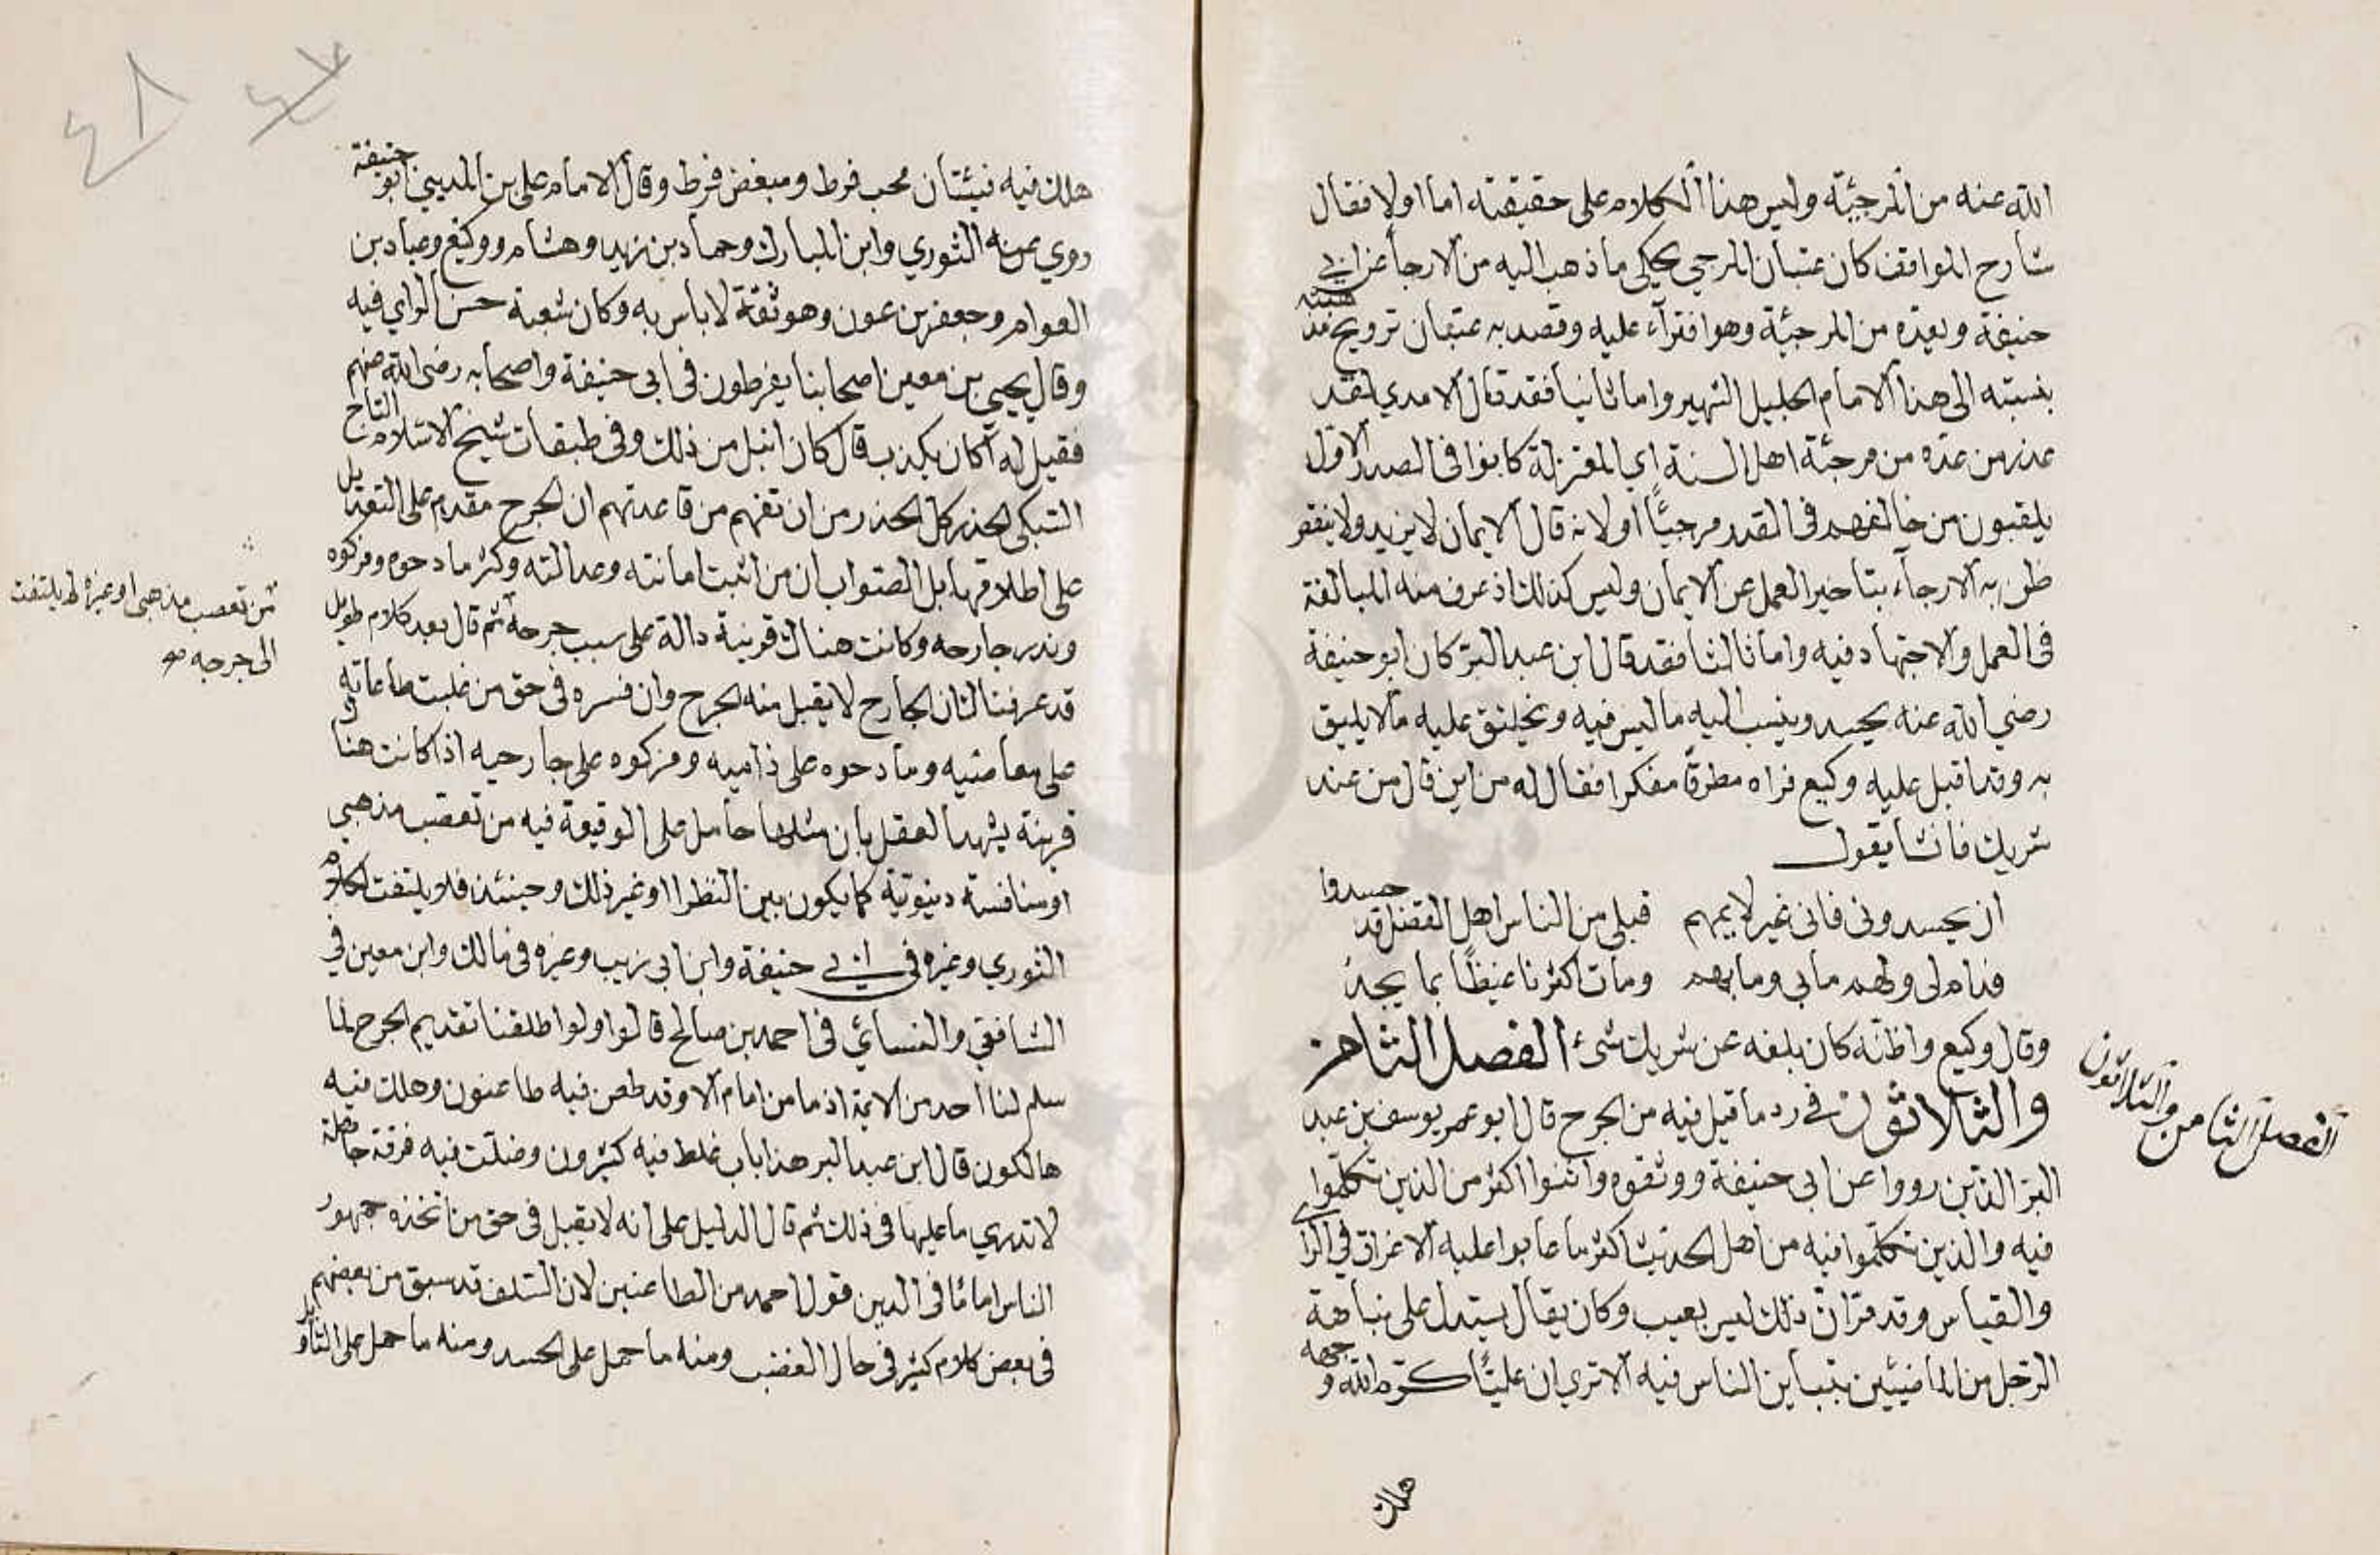 الله عنه من المرجئة وليس هذا الكلام على حقيقته اما اولا فقال
شارح المواقف كان غسان المرجي يحكي ما ذهب اليه من الارجاء عن ابي
حنيفة ويعده من المرجئة وهو افتراء عليه وقصد به غسان ترويج مذهبه
بنسبته الى هذا الامام الجليل الشهير واما ثانيا فقد قال الامدي لقد
عذر من عده من مرجئة اهل السنة اي المعتزلة كانوا في الصدر الاول
يلقبون من خالفهم في القدر مرجيًّا او لانه قال الايمان لا يزيد ولا ينقص
ظن به الارجاء بتاخير العمل عن الايمان وليس كذلك اذ عرف منه المبالغة
في العمل والاجتهاد فيه واما ثالثا فقد قال ابن عبد البر كان ابو حنيفة
رضي الله عنه يحسد وينسب اليه ما ليس فيه ويختلق عليه ما لا يليق
به وقد اقبل عليه وكيع فراه مطرقا مفكرا فقال له من اين قال من عند
شريك فانشا يقول
ان يحسدوني فاني غير لايمهم قبلي من الناس اهل الفضل قد حسدوا
فدام لي ولهم ما بي وما بهم ومات اكثرنا غيظًا بما يجدُ
وقال وكيع واظنه كان بلغه عن شريك شيء الفصل الثامن
والثلاثون في رد ما قيل فيه من الجرح قال ابو عمر يوسف بن عبد
البر الذين رووا عن ابي حنيفة ووثقوه واثنوا اكثر من الذين تكلموا
فيه والذين تكلموا فيه من اهل الحديث اكثر ما عابوا عليه الاغراق في الراي
والقياس وقد مر ان ذلك ليس بعيب وكان يقال يستدل على نباهة
الرجل من الماضيين بتباين الناس فيه الا تري ان عليًّا كرم الله وجهه
هلك
الفصل الثامن والثلاثون
هلك فيه فئتان محب فرط ومبغض فرط وقال الامام علي بن المديني ابو حنيفة
روي عنه الثوري وابن المبارك وحماد بن زيد وهشام ووكيع وعباد بن
العوام وجعفر بن عون وهو ثقة لا باس به وكان شعبة حسن الراي فيه
وقال يحيي بن معين اصحابنا يفرطون في ابي حنيفة واصحابه رضي الله عنهم
فقيل له اكان يكذب قال كان انبل من ذلك وفي طبقات شيخ الاسلام التاج
السبكي الحذر كل الحذر من ان تفهم من قاعدتهم ان الجرح مقدم على التعديل
على اطلاقها بل الصواب ان من اثبت امانته وعدالته وكثر مادحوه ومزكوه
وندر جارحه وكانت هناك قرينة دالة على سبب جرحه ثم قال بعد كلام طويل
قد عرفنا ان الجارح لا يقبل منه الجرح وان فسره في حق من غلبت طاعاته
على معاصيه ومادحوه على ذاميه ومزكوه على جارحيه اذا كانت هناك
قرينة يشهد العقل بان مثلها حامل على الوقيعة فيه من تعصب مذهبي
او منافسة دنيوية كما يكون بين النظرا او غير ذلك وحينئذ فلا يلتفت لكلام
الثوري وغيره في ابي حنيفة وابن ابي زيب وغيره في مالك وابن معين في
الشافعي والنسائي في احمد بن صالح قالوا ولو اطلقنا تقديم الجرح لما
سلم لنا احد من الايمة اذ ما من امام الا وقد طعن فيه طاعنون وهلك فيه
هالكون قال ابن عبد البر هذا باب غلط فيه كثيرون وضلت فيه فرقة جاهلة
لا تدري ما عليها في ذلك ثم قال الدليل على انه لا يقبل في حق من اتخذه جمهور
الناس اماما في الدين قول احمد من الطاعنين لان السلف قد سبق من بعضهم
في بعض كلام كثير في حال الغضب ومنه ما حمل على الحسد ومنه ما حمل على التاويل
من تعصب مذهبي او غيره لم يلتفت
الى جرحه صح
٤٨